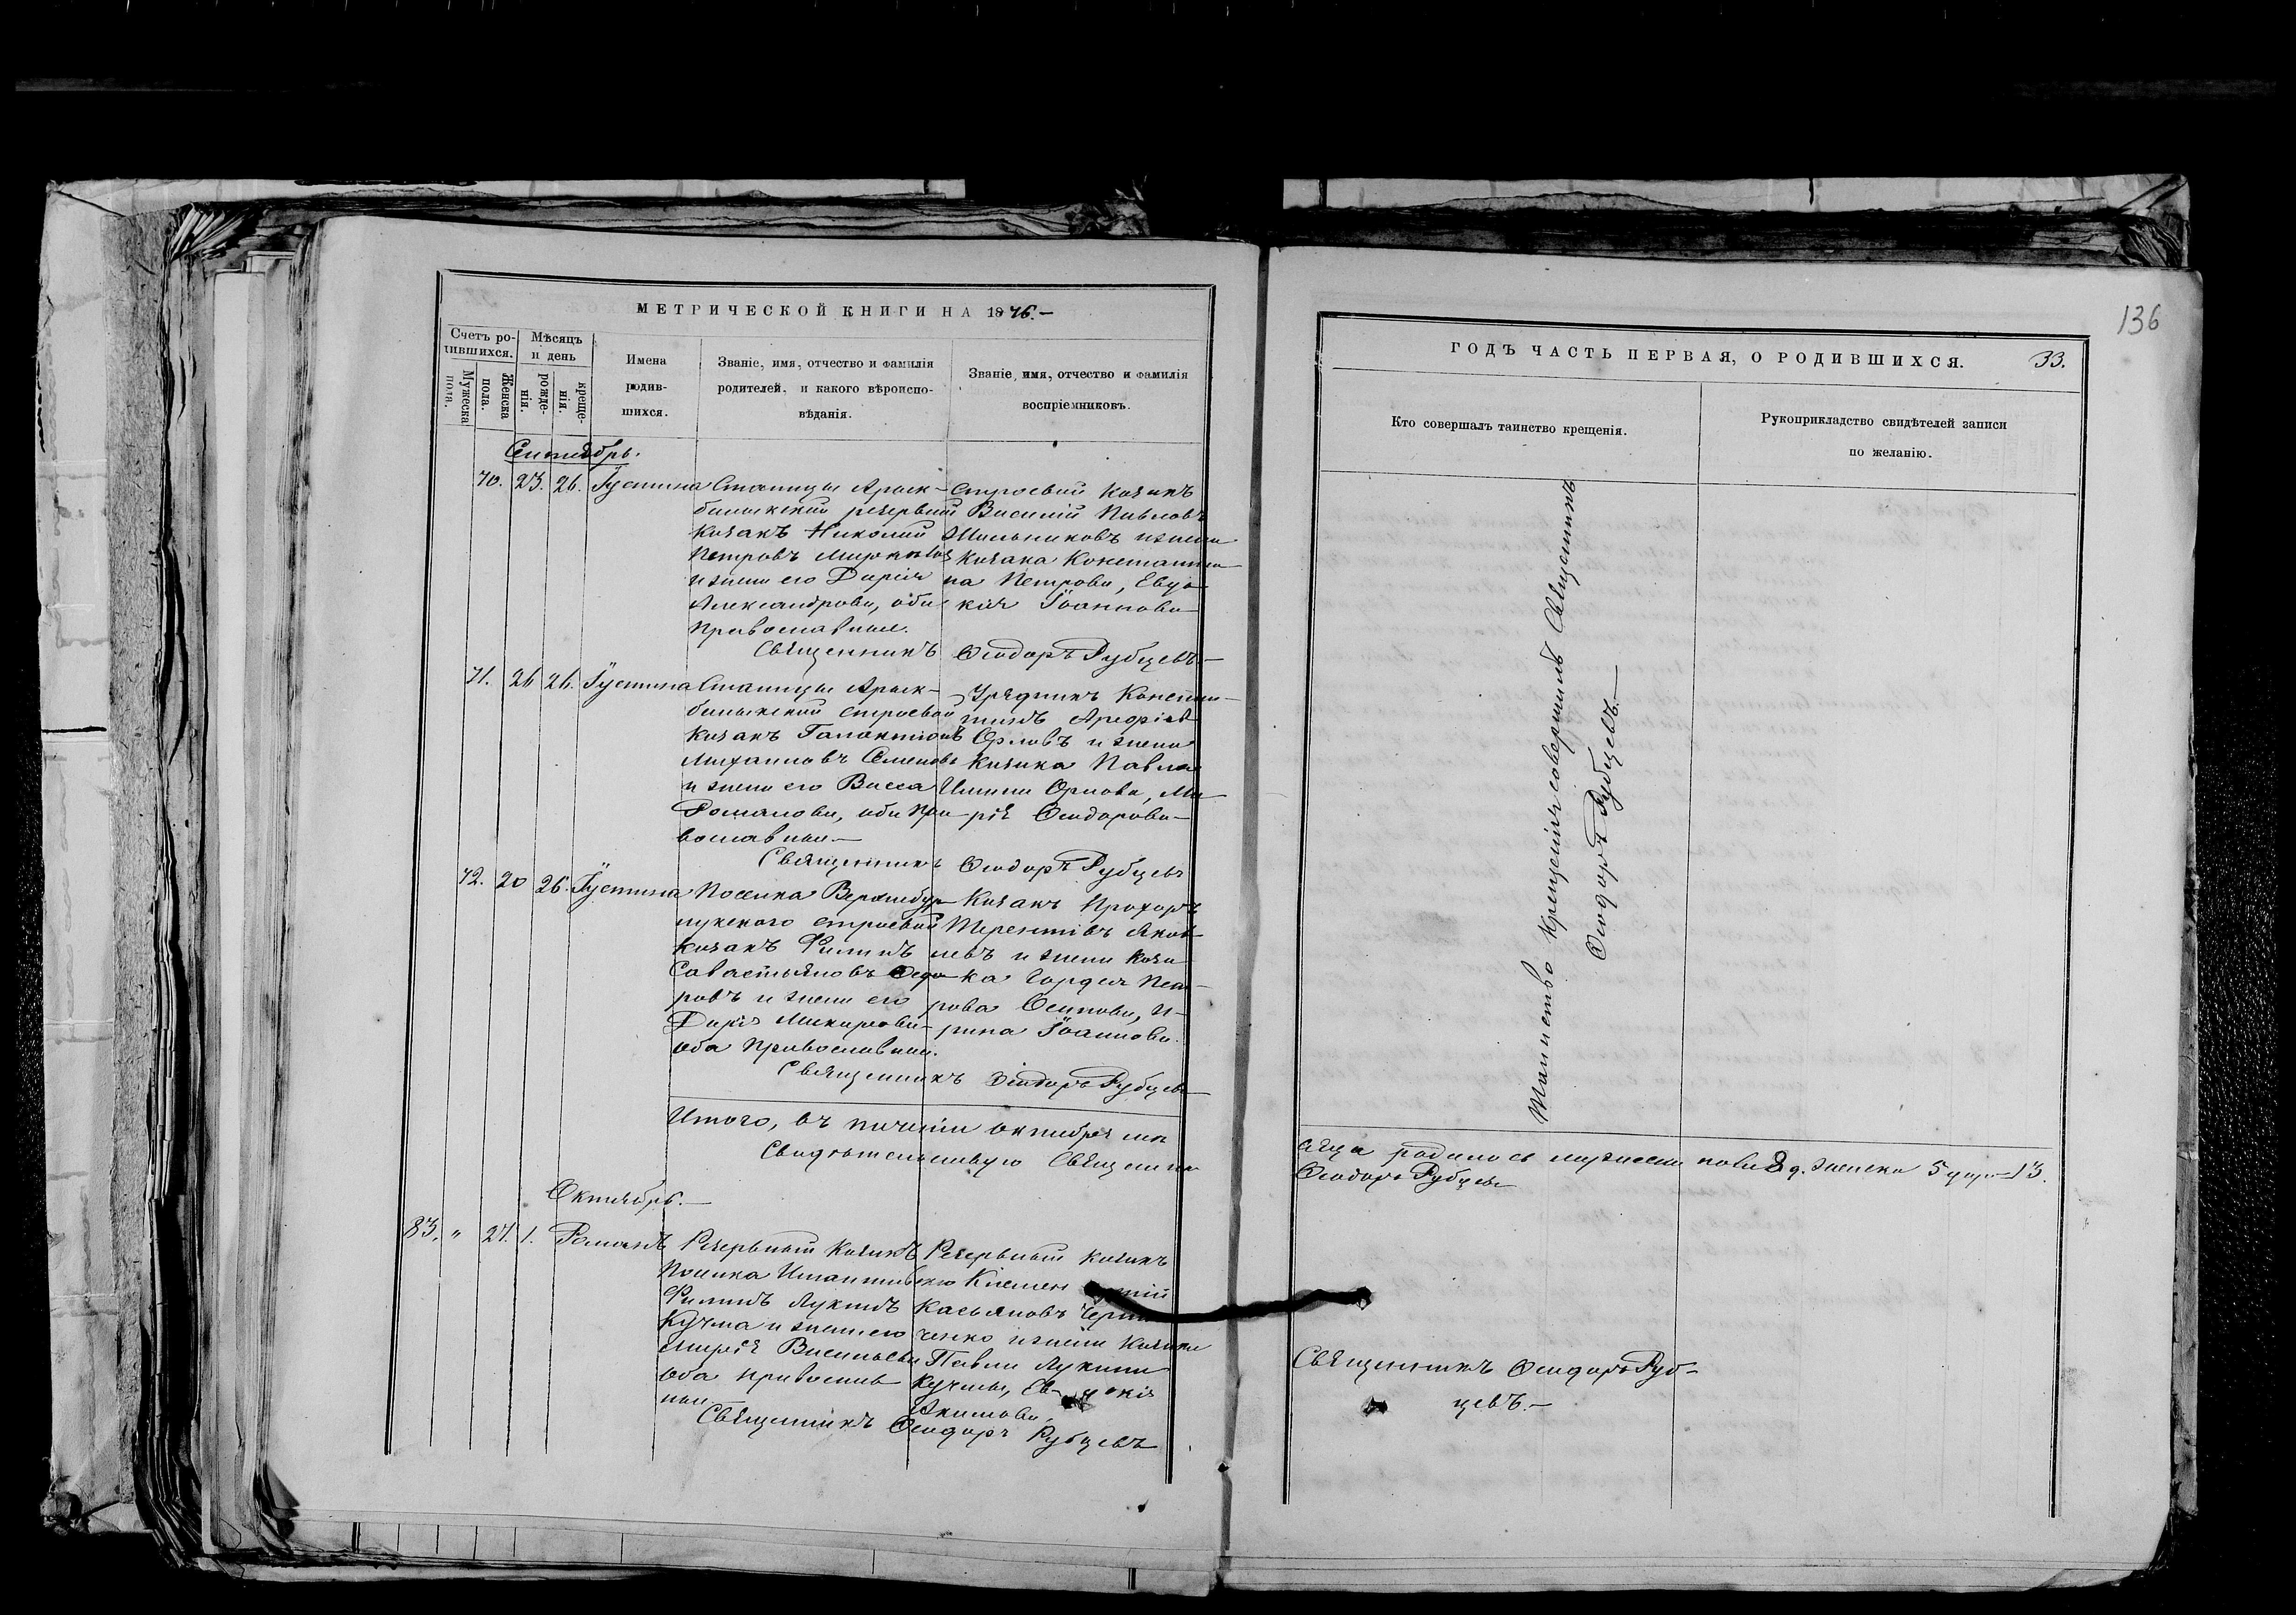 МЕТРИЧЕСКОЙ КНИГИ НА 1876.—
Счетъ ро-
дившихся.
Мужеска
пола.
Женска
пола.
Мѣсяцъ
и день
рожде-
нія.
креще-
нія.
Имена
родив-
шихся.
Званіе, имя, отчество и фамилія
родителей, и какого вѣроиспо-
вѣданія.
Званіе, имя, отчество и фамилія
воспріемниковъ.
Сентябрь.
70. 23. 26. Іустина
Станицы Арык-
балыкской резервный
Козакъ Николай
Петровъ
и жена его Дарія
Александрова, оба
православные.
Строевой Козакъ
Василій Павловъ
Мыльниковъ и жена
Козака Константи-
на Петрова, Евдо-
кія Іоаннова
Священникъ Ѳеодоръ Рубцевъ.—
71. 26 26. Іустина
Станицы Арык-
балыкской строевой
Козакъ Галактіонъ
Михайловъ Семеновъ
и жена его Васса
Романова, оба пра-
вославные—
Урядникъ Констан-
тинъ Арефіевъ
Орловъ и жена
Козака Павла
Ильина Орлова, Ма-
рія Ѳеодорова—
Священникъ Ѳеодоръ Рубцевъ
72. 20 26. Іустина
Поселка Верхнебур-
лукского строевой
Козакъ Филипъ
Савастьяновъ Ѳедо-
ровъ и жена его
Дарія Макарова—
оба православные.
Козакъ Прохоръ
Терентіевъ Яков-
левъ и жена Коза-
ка Гордея Пет-
рова Осипова, И-
рина Іоаннова.
Священникъ Ѳеодоръ Рубцевъ
Итого, въ теченіи октября мѣ-
Свидѣтельствую Священникъ
Октябрь.—
83. " 27. 1. Романъ
Резервный Козакъ
Поселка Имантавского
Филипъ Лукинъ
Кучма и жена его
Марія Васильева
оба православ-
ные.
Резервный Козакъ
Касьяновъ
ченко и жена Козака
Павла Лукина
Кучмы, Ев-докія
Акимова.
Священникъ Ѳеодоръ Рубцевъ
136
ГОДЪ ЧАСТЬ ПЕРВАЯ, О РОДИВШИХСЯ.
33.
Кто совершалъ таинство крещенія.
Рукоприкладство свидѣтелей записи
по желанію.
Таинство Крещенія совершилъ Священникъ
Ѳеодоръ Рубцевъ.—
сяца родилось мужеска пола 8 д. женска 5 13.
Ѳеодоръ Рубцевъ
Священникъ Ѳеодоръ Руб-
цевъ.—